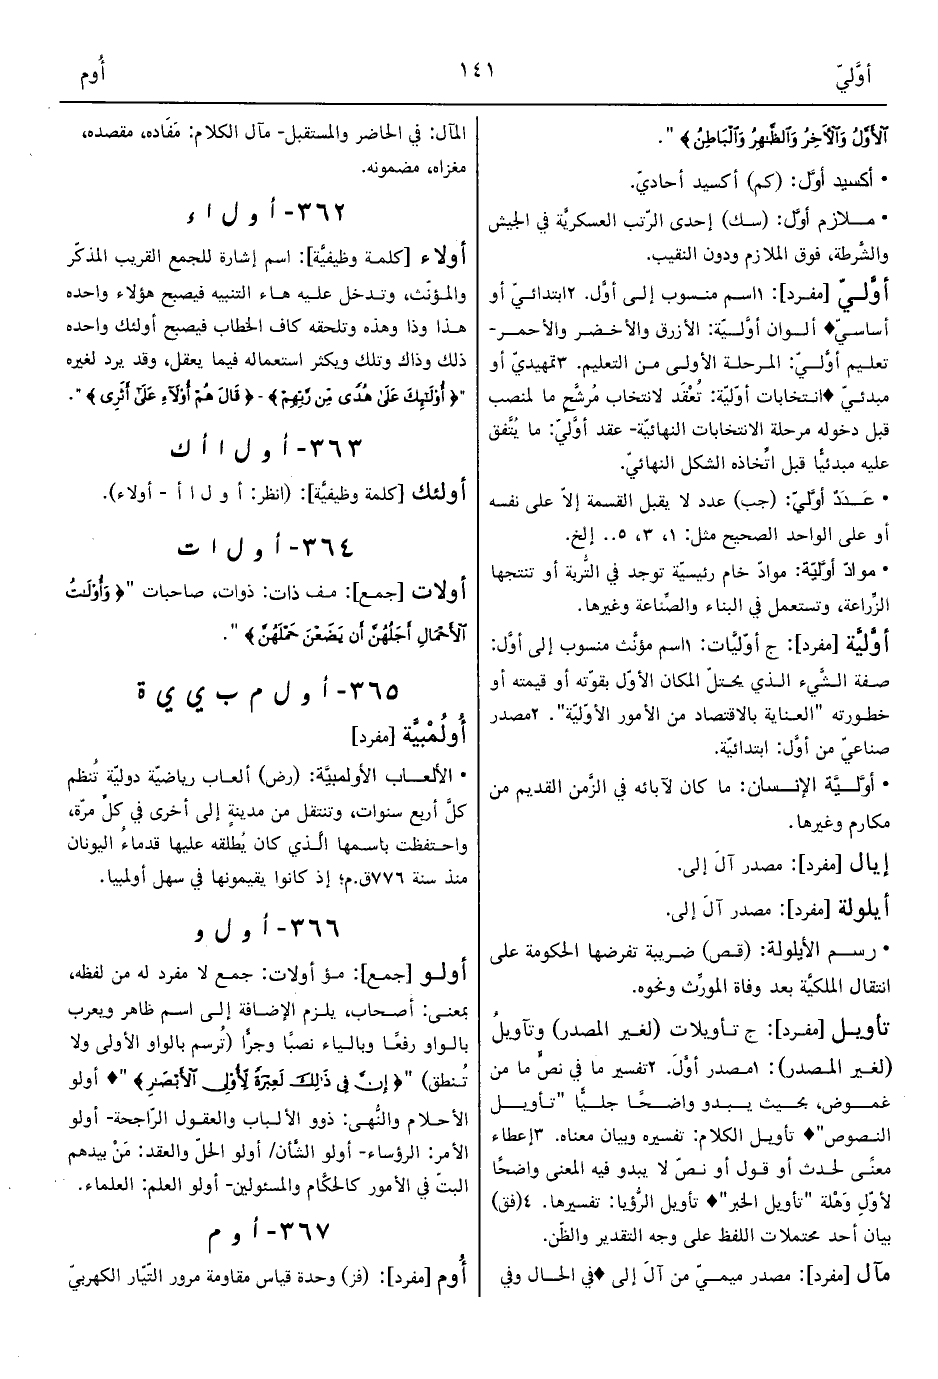 أوَّليّ
١٤١
أُوم
ٱلْأَوَّلُ وَٱلْآخِرُ وَٱلظَّٰهِرُ وَٱلْبَاطِنُ﴾ ".
• أكسيد أوَّل: (كم) أكسيد أحاديّ.
• مـلازم أوَّل: (سك) إحدى الرّتب العسكريَّة في الجيش
والشُّرطة، فوق الملازم ودون النقيب.
أوَّليّ [مفرد]: ١اسم منسوب إلى أوَّل. ٢ابتدائيّ أو
أساسيّ♦ ألـوان أوَّليَّة: الأزرق والأخضر والأحمر-
تعليم أوَّليّ: المرحلة الأولى من التعليم. ٣تمهيديّ أو
مبدئيّ♦انتخابات أوّليّة: تُعْقَد لانتخاب مُرشَّح ما لمنصب
قبل دخوله مرحلة الانتخابات النهائيّة- عقد أوَّليّ: ما يُتَّفق
عليه مبدئيًّا قبل اتِّخاذه الشكل النهائيّ.
• عَـدَدٌ أوّليّ: (جب) عدد لا يقبل القسمة إلاّ على نفسه
أو على الواحد الصحيح مثل: ١، ٣، ٥.. إلخ.
• موادّ أوَّليَّة: موادّ خام رئيسيّة توجد في التُّربة أو تنتجها
الزِّراعة، وتستعمل في البناء والصِّناعة وغيرها.
أوَّليَّة [مفرد]: ج أوّليَّات: ١اسم مؤنَّث منسوب إلى أوَّل:
صفة الشَّيء الـذي يحتلّ المكان الأوّل بقوّته أو قيمته أو
خطورته "العناية بالاقتصاد من الأمور الأوّليّة". ٢مصدر
صناعيّ من أوَّل: ابتدائيَّة.
• أوَّلـيَّة الإنـسان: ما كان لآبائه في الزَّمن القديم من
مكارم وغيرها.
إيال [مفرد]: مصدر آلَ إلى.
أيلولة [مفرد]: مصدر آلَ إلى.
• رسـم الأيلولة: (قص) ضريبة تفرضها الحكومة على
انتقال الملكيَّة بعد وفاة المورِّث ونحوه.
تأويل [مفرد]: ج تأويلات (لغير المصدر) وتآويلُ
(لغير المصدر): ١مصدر أوَّلَ. ٢تفسير ما في نصٍّ ما من
غموض، بحيث يبدو واضحًا جليًّا "تأويـل
النصوص"♦ تأويل الكلام: تفسيره وبيان معناه. ٣إعطاء
معنًى لحدث أو قول أو نصّ لا يبدو فيه المعنى واضحًا
لأوّلِ وَهْلة "تأويل الخبر"♦ تأويل الرُّؤيا: تفسيرها. ٤(فق)
بيان أحد محتملات اللفظ على وجه التقدير والظّن.
مآل [مفرد]: مصدر ميميّ من آلَ إلى ♦في الحال وفي
المآل: في الحاضر والمستقبل- مآل الكلام: مَفَاده، مقصده،
مغزاه، مضمونه.
٣٦٢- أ و ل ا ء
أولاء [كلمة وظيفيَّة]: اسم إشارة للجمع القريب المذكّر
والمؤنّث، وتدخل عليه هاء التنبيه فيصبح هؤلاء واحده
هذا وذا وهذه وتلحقه كاف الخطاب فيصبح أولئك واحده
ذلك وذاك وتلك ويكثر استعماله فيما يعقل، وقد يرد لغيره
"﴿ أُوْلَٰٓئِكَ عَلَىٰ هُدًى مِّن رَّبِّهِمْ﴾-﴿ قَالَ هُمْ أُوْلَآءِ عَلَىٰٓ أَثَرِى ﴾".
٣٦٣- أ و ل ا أ ك
أولئك [كلمة وظيفيَّة]: (انظر: أ و ل ا أ - أولاء).
٣٦٤- أ و ل ا ت
أولات [جمع]: مف ذات: ذوات، صاحبات "﴿ وَأُوْلَٰتُ
ٱلْأَحْمَالِ أَجَلُهُنَّ أَن يَضَعْنَ حَمْلَهُنَّ﴾ ".
٣٦٥- أ و ل م ب ي ي ة
أُولُمْبِيَّة [مفرد]
• الألعاب الأولمبيَّة: (رض) ألعاب رياضيّة دوليّة تُنظم
كلَّ أربع سنوات، وتنتقل من مدينةٍ إلى أخرى في كلّ مرّة،
واحتفظت باسمها الَّذي كان يُطلقه عليها قدماءُ اليونان
منذ سنة ٧٧٦ق.م؛ إذ كانوا يقيمونها في سهل أولمبيا.
٣٦٦- أ و ل و
أولـو [جمع]: مؤ أولات: جمع لا مفرد له من لفظه،
بمعنى: أصحاب، يلزم الإضافة إلى اسم ظاهر ويعرب
بالواو رفعًا وبالياء نصبًا وجرًّا (تُرسم بالواو الأولى ولا
تُنطق) "﴿ إِنَّ فِى ذَٰلِكَ لَعِبْرَةً لِّأُوْلِى ٱلْأَبْصَٰرِ﴾ "♦ أولو
الأحلام والنُّهى: ذوو الألباب والعقول الرَّاجحة- أولو
الأمر: الرؤساء- أولو الشَّأن/ أولو الحلّ والعقد: مَنْ بيدهم
البتّ في الأمور كالحكَّام والمسئولين- أولو العلم: العلماء.
٣٦٧- أ و م
أُوم [مفرد]: (فز) وحدة قياس مقاومة مرور التّيّار الكهربيّ